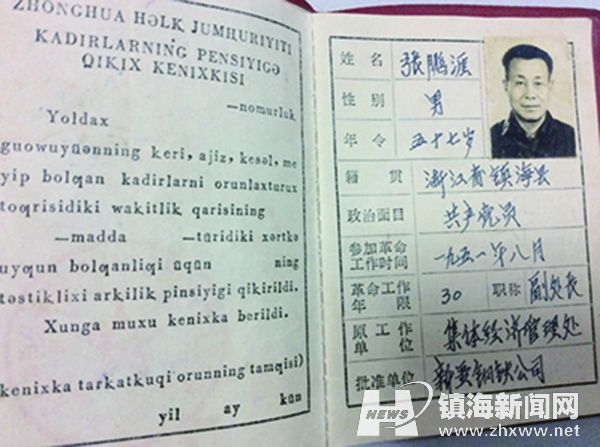 ZHONGHUA HƏLK JUMⱨURIYITI
KADIRLARNING PENSIYIGƏ
QIKIX KENIXKISI
—nomurluk
Yoldax
guowuyüənning keri, ajiz, kesəl, me
yip bolƣan kadirlarni orunlaxturux
toƣrisidiki wakitlik qarisining
—madda —türidiki xərtkə
uyƣun bolƣanliƣi üqün ning
təstiklixi arkilik pinsiyigi qikirildi.
Xunga muxu kenixka berildi.
(kenixka tarkatkuqi orunning tamƣisi)
yil ay kün
姓名 張鵬涯
性别 男
年令 五十七岁
籍贯 浙江省镇海县
政治面目 共产党员
参加革命工作时间 一九五一年八月
革命工作年限 30 职称 副处长
原工作单位 集体经济管理处
批准单位 新疆钢铁公司
H NEWS 镇海新闻网
www.zhxww.net